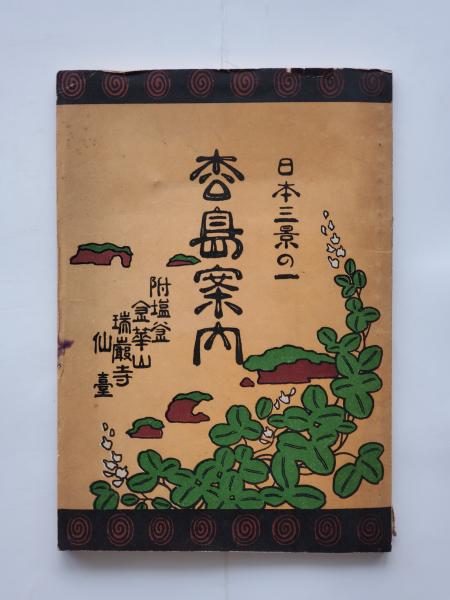 日本三景の一
枩島案内
附塩釜
金華山
瑞巌寺
仙臺